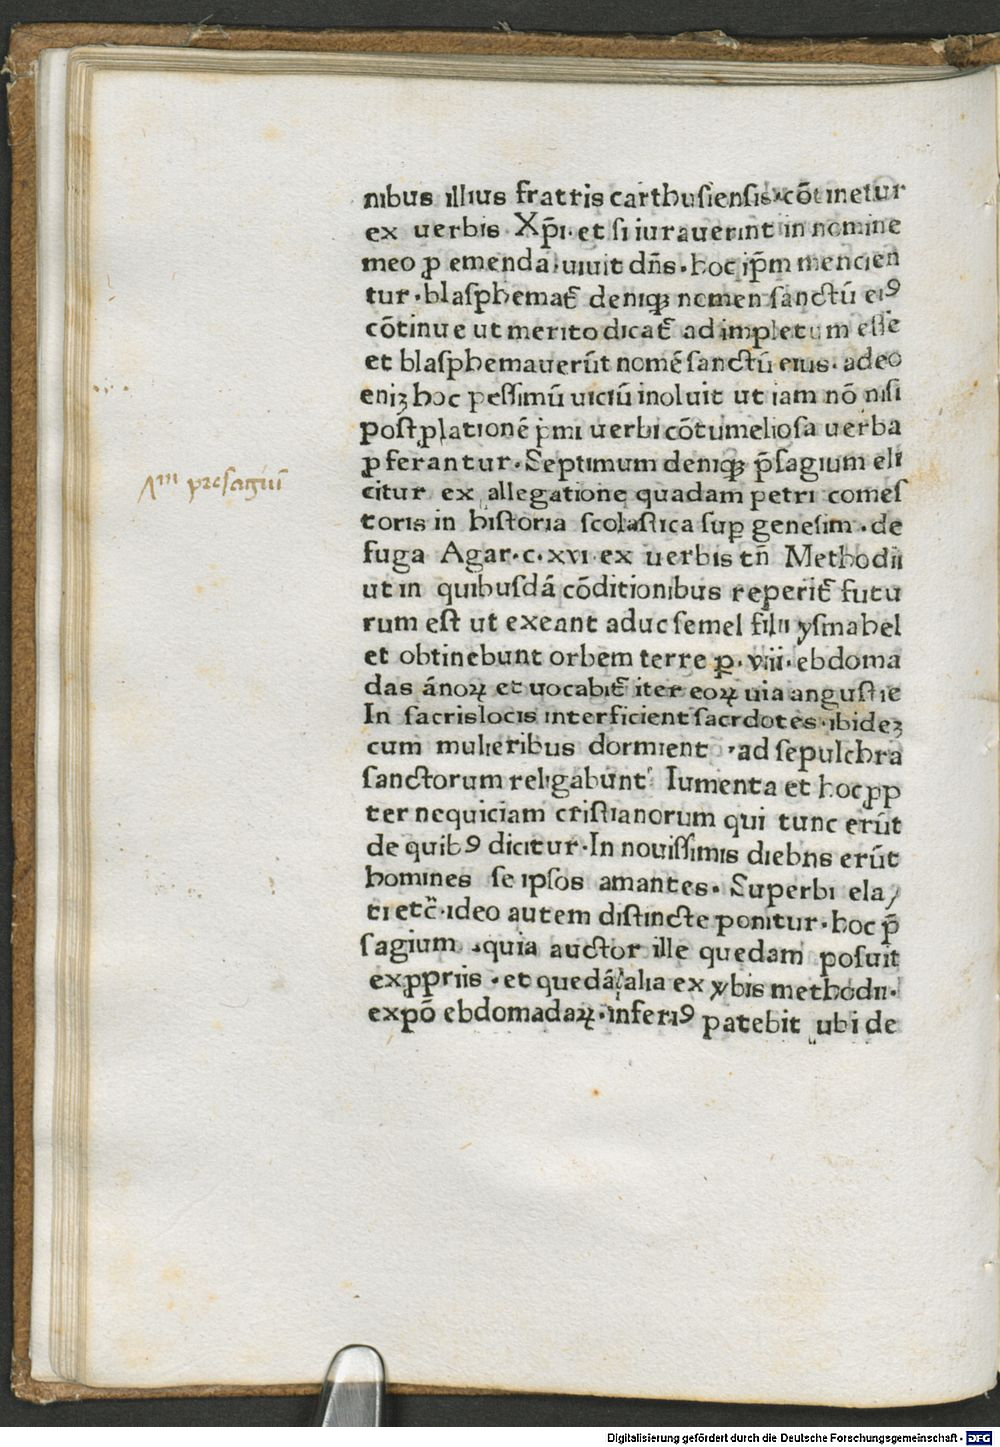 nibus illius fratris carthusiensis·cōtinetur
ex uerbis Xp̄i·et si iurauerint in nomine
meo ꝓ emenda·uiuit dn̄s·hoc ip̄m mencien
tur·blasphemat᷑ deniqꝫ nomen sanctū eiꝰ
cōtinue ut merito dicat᷑ ad impletum esse
et blasphemauerūt nomē sanctū eius·adeo
eniꝫ hoc pessimū uiciū inoluit ut iam nō nisi
post ꝓlationē p̄mi uerbi cōtumeliosa uerba
ꝓferantur·Septimum deniqꝫ p̄sagium eli
citur ex allegatione quadam petri comes
toris in historia scolastica suꝑ genesim·de
fuga Agar·c·xvi·ex uerbis tn̄ Methodii
ut in quibusdā cōditionibus reperit᷑ futu
rum est ut exeant aduc semel filii ysmahel
et obtinebunt orbem terre ꝑ·viii·ebdoma
das ānoꝝ et uocabit᷑ iter eoꝝ uia angustie
In sacrislocis interficient sacrdotes·ibideꝫ
cum mulieribus dormient ad sepulchra
sanctorum religabunt᷑ Iumenta et hoc ꝓp
ter nequiciam cristianorum qui tunc erūt
de quibꝰ dicitur·In nouissimis diebns erūt
homines se ipsos amantes·Superbi ela/
ti etc̄·ideo autem distincte ponitur·hoc p̄
sagium·quia auctor ille quedam posuit
ex ꝓpriis·et quedā alia ex ỽbis methodii·
expō ebdomadaꝝ·inferiꝰ patebit ubi de
7m presagiū
Digitalisierung gefördert durch die Deutsche Forschungsgemeinschaft - DFG